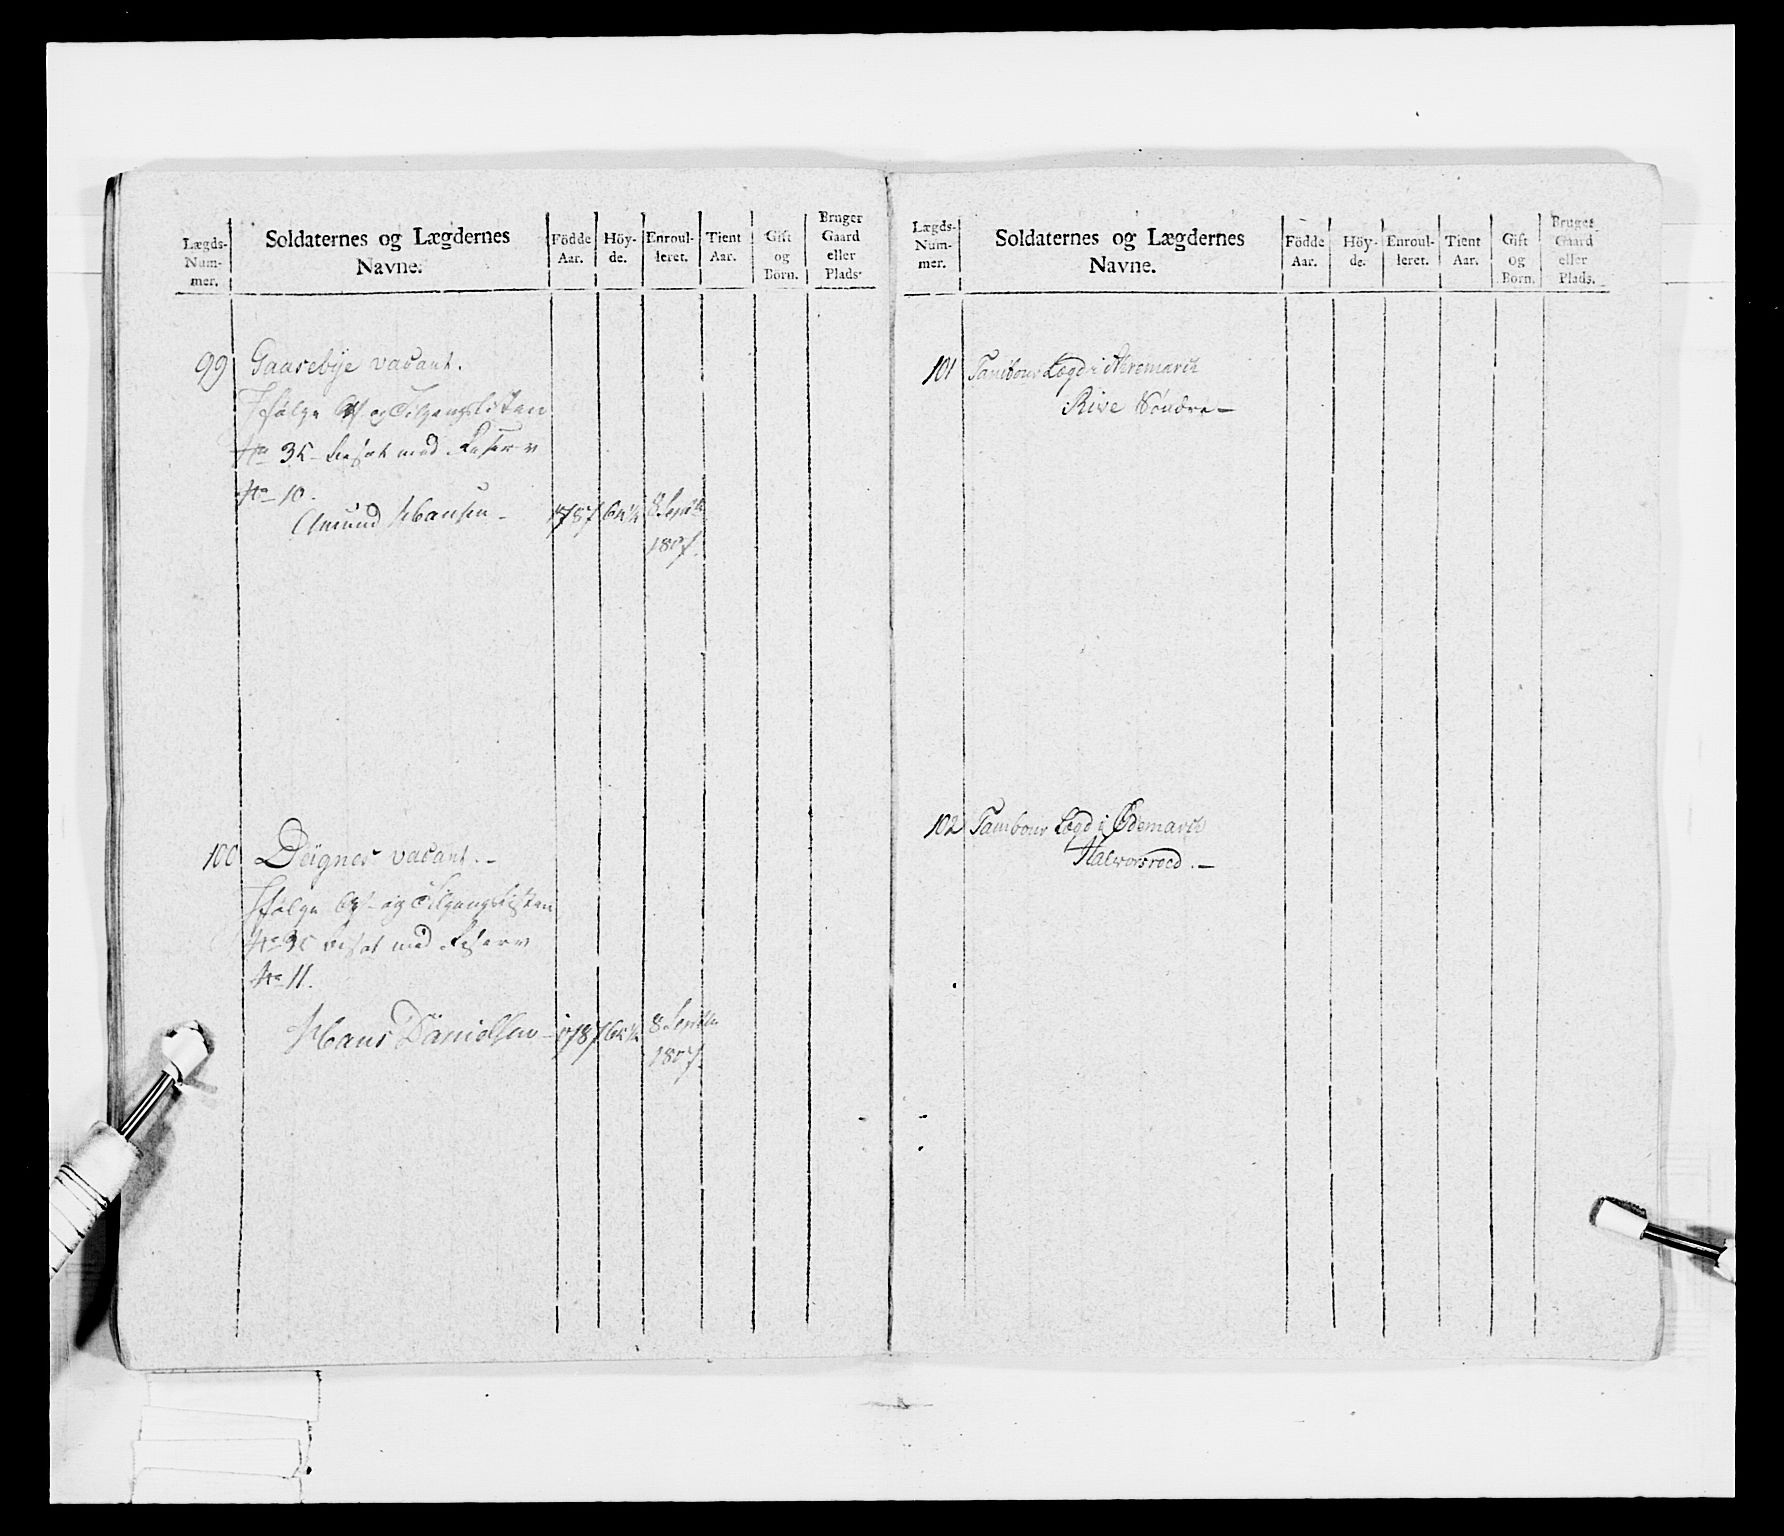 Lægds-
Num-
mer.
Soldaternes og Lægdernes
Navne.
Födde
Aar.
Höy-
de.
Enroul-
leret.
Tient
Aar.
Gift
og
Börn.
Bruger
Gaard
eller
Plads.
99 Gaasebye vacant.
Ifølge Af og Tilgangslisten
No 35 besat med Reserv
No 10.
Amund Hansen - 1787 8 Septbr
1807.
100 Dügnes vacant. -
Ifølge Af- og Tilgangslisten
No 35 besat med Reserv
No 11.
Hans Danielsen - 1787 8 Septbr
1807.
Lægds-
Num-
mer.
Soldaternes og Lægdernes
Navne.
Födde
Aar.
Höy-
de.
Enroul-
leret.
Tient
Aar.
Gift
og
Börn.
Bruger
Gaard
eller
Plads.
101 Tambour Lægd i Aremarch
Rive Söndre -
102 Tambour Lægd i Ødemarch
Halvorsroed. -